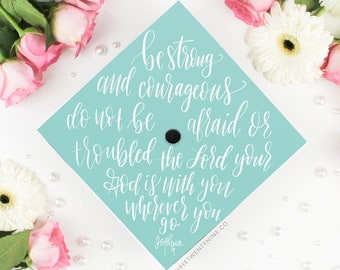 be strong
and courageous
do not be afraid or
troubled the Lord your
God is with you
wherever you
go
Joshua
1:9